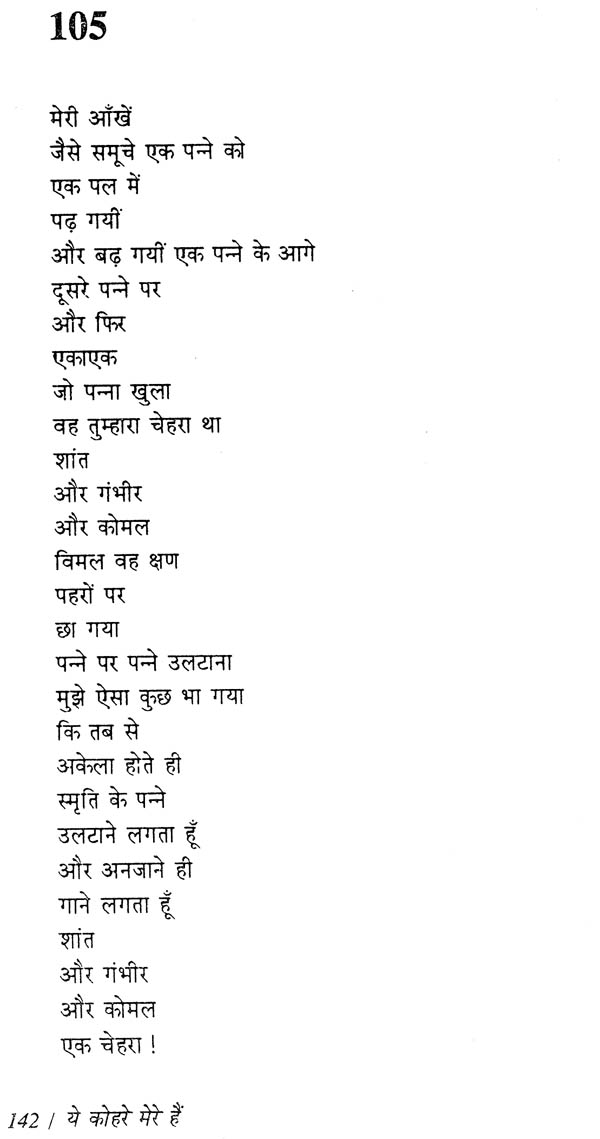 105
मेरी आँखें
जैसे समूचे एक पन्ने को
एक पल में
पढ़ गयीं
और बढ़ गयीं एक पन्ने के आगे
दूसरे पन्ने पर
और फिर
एकाएक
जो पन्ना खुला
वह तुम्हारा चेहरा था
शांत
और गंभीर
और कोमल
विमल वह क्षण
पहरों पर
छा गया
पन्ने पर पन्ने उलटाना
मुझे ऐसा कुछ भा गया
कि तब से
अकेला होते ही
स्मृति के पन्ने
उलटाने लगता हूँ
और अनजाने ही
गाने लगता हूँ
शांत
और गंभीर
और कोमल
एक चेहरा !
142 / ये कोहरे मेरे हैं